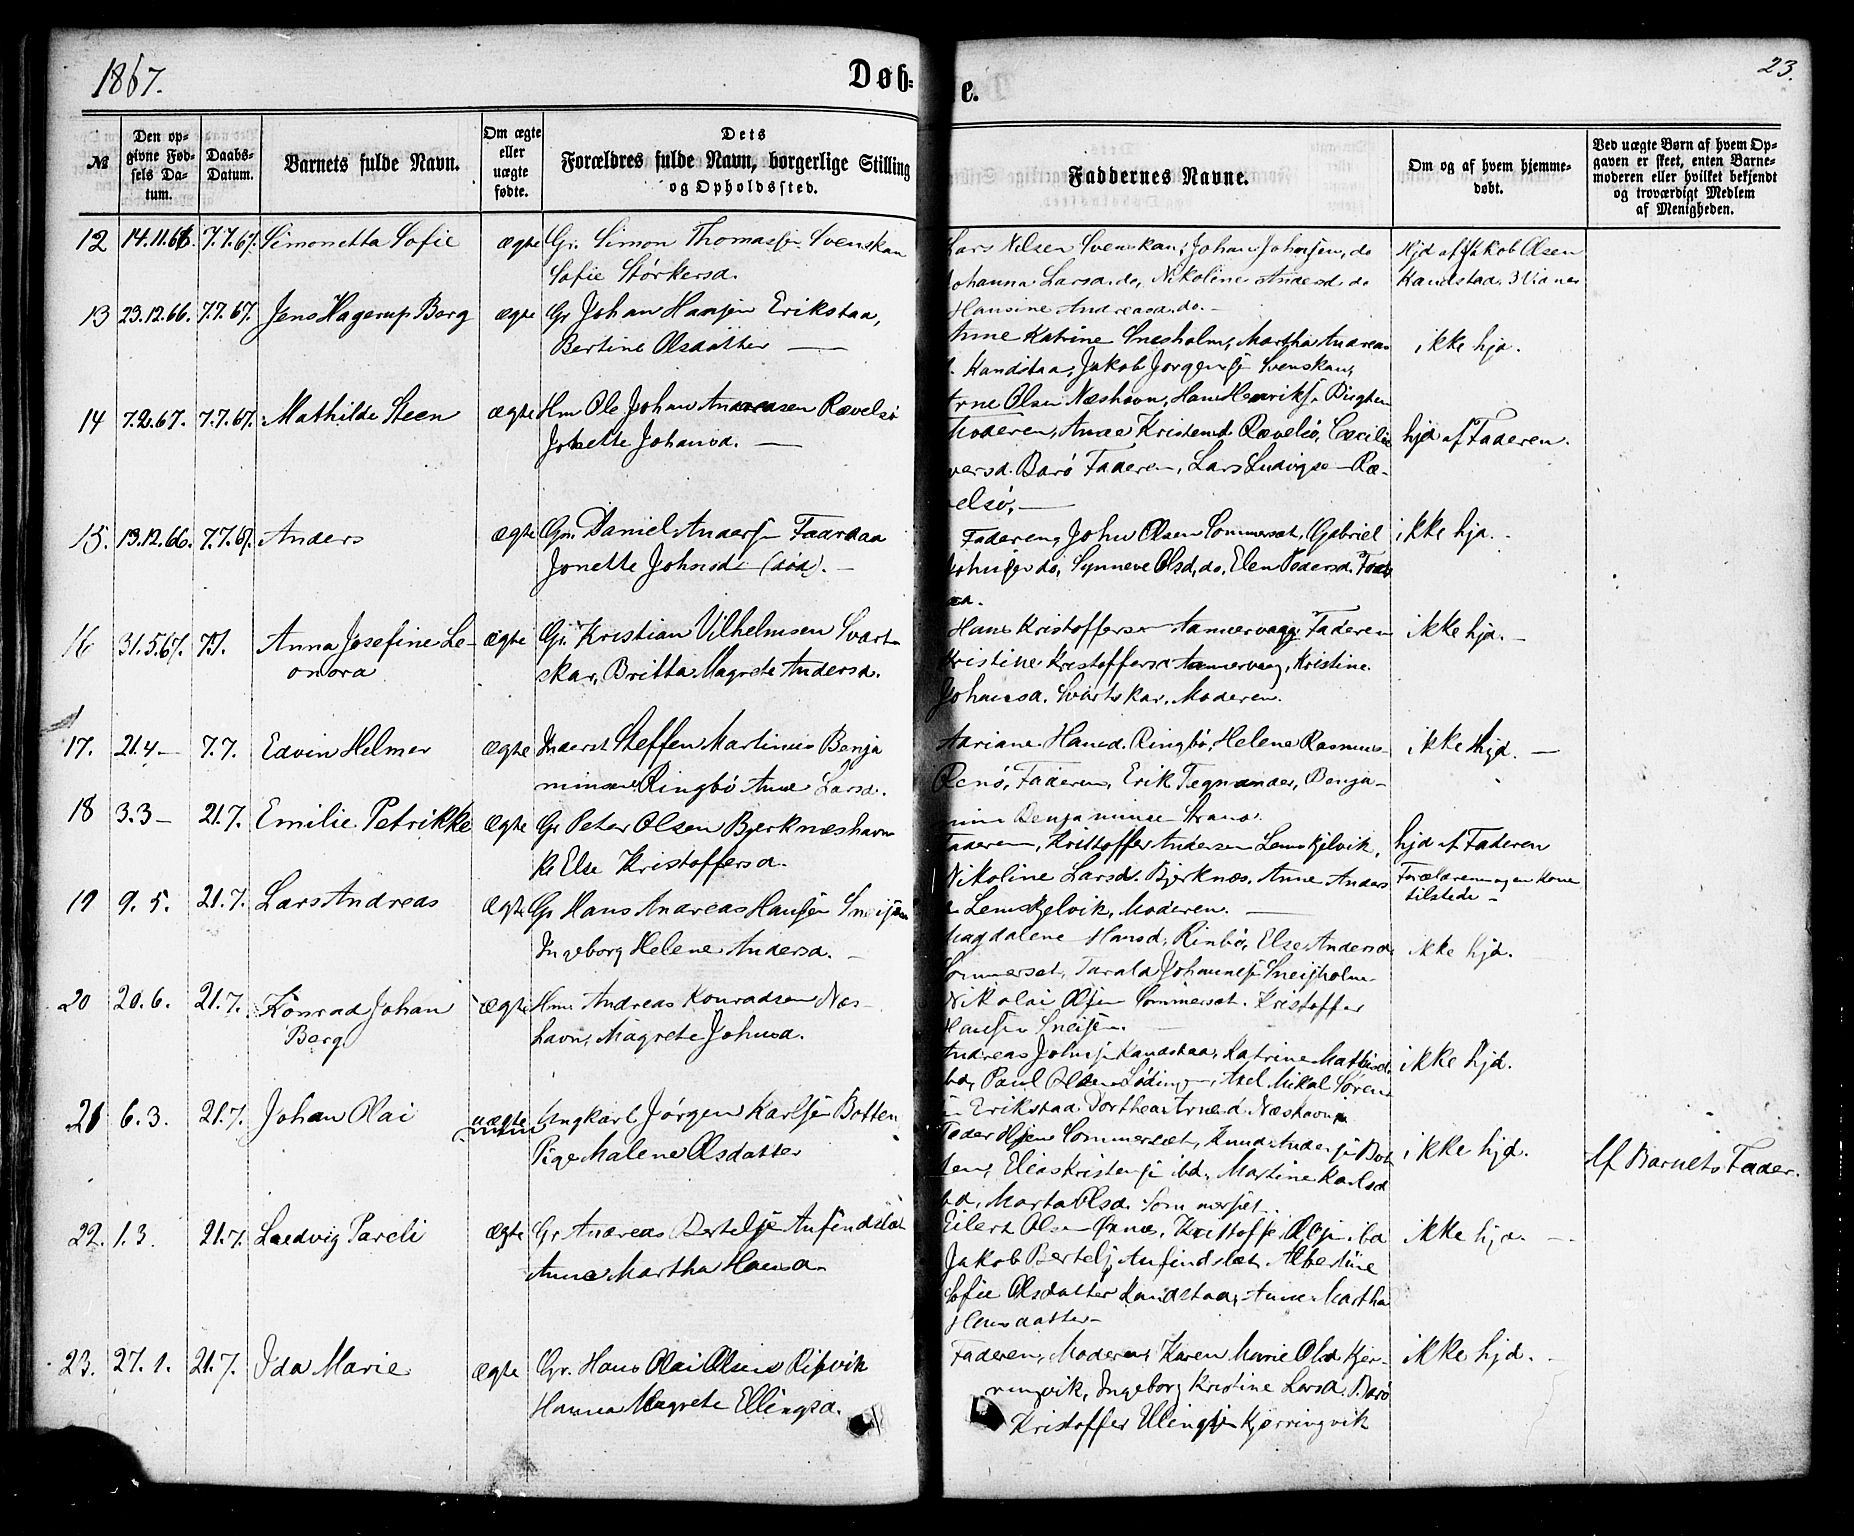 1867.
Døb=
e.
23.
№
Den opgivne Fødsels Datum.
Daabs-Datum.
Barnets fulde Navn.
Om ægte eller uægte fødte.
Dets Forældres fulde Navn, borgerlige Stilling og Opholdssted.
Faddernes Navne.
Om og af hvem hjemmedøbt.
Ved uægte Børn af hvem Opgaven er skeet, enten Barnemoderen eller hvilket bekjendt og troværdigt Medlem af Menigheden.
12 14.11.66. 7.7.67. Simonetta Sofie ægte Gr. Simon Thomassen Svenskan
Sofie Størkersd.
Lars Nilsen Svenskan, Johan Johnsen, do
Johanna Larsd. do, Nikoline Andersd. do
Hansine Andreasd. do.
Hjd af Jakob Olsen
Kandstad
13 23.12.66. 7.7.67. Jens Hagerup Berg ægte Gr Johan Hansen Erikstaa,
Bertine Olsdatter —
Anne Katrine Snesholm, Martha Andreas
d. Kandstaa, Jakob Jørgensen Svenskan,
Arne Olsen Næshavn, Hans Henriks.
ikke hjd.
14 7.2.67. 7.7.67. Mathilde Steen ægte Hm Ole Johan Andreasen Rævelsø
Jonette Johansd. —
Moderen, Anne Kristensd Rævelsø, Cæcilie
versd. Barø Faderen, Lars Ludvigsen Ræ-
velsø, —
hjd af Faderen.
15. 13.12.66. 7.7.67. Anders ægte Gr. Daniel Anders. Faardaa
Jonette Johnsd. (død). —
Faderen, John Olsen Sommerset, Gabriel
Johnsen do, Synneve Olsd, do, Elen Pedersd.
ikke hjd.
16 31.5.67. 7.7. Anna Josefine Le-
onora ægte Gr. Kristian Vilhelmsen Svart-
skar, Britta Magrete Andersd.
Hans Kristoffersen Aannervaag, Faderen
Kristine Kristoffersd Aannervaag, Kristine
Johansd. Svartskar, Moderen.
ikke hjd. —
17. 21.4 — 7.7. Edvin Helmer ægte Inderst Steffen Martinus Benja
minsen Ringbø Anne Larsd.
Adriane Hansd. Ringbø, Helene Rasmus-
Renø, Faderen, Erik Tegnander, Benja-
min Benjaminsen
ikke hjd. —
18 3.3 — 21.7. Emilie Petrikke ægte Gr Peter Olsen Bjerknæshavn
K. Else Kristoffersd.
Faderen, Kristoffer Andersen Lemskjelvik,
Nikoline Larsd. Bjerknæs, Anne Anders
d Lemskjelvik, Moderen. —
hjd af Faderen
Forældrene og en Kone
tilstede —
19 9.5. 21.7. Lars Andreas ægte Gr Hans Andreas Hansen Sneisen
Ingeborg Helene Andersd. —
Magdalene Hansd, Rinbø, Else Andersd
Sommerset, Tarald Johannes. Sneisholm
Nikolai Olsen Sommerset. Kristoffer
Hansen Sneisen.
ikke hjd.
20 20.6. 21.7. Konrad Johan
Berg ægte Hm Andreas Konradsen Næs-
havn, Magrete Johnsd.
Andreas Johnsen Kandstaa, Katrine Mathisd.
ibd, Paul Olsen Løding, Axel Mikal Søren
Erikstaa. Dorthea Arned. Næshavn
ikke hjd.
21 6.3. 21.7. Johan Olai uægte Ungkarl Jørgen Karlsen Botten
Pige Malene Olsdatter
Peder Olsen Sommersæt, Knud Andersen Bot
ten, Elias Kristensen ibd, Martine Karlsd
ibd, Marta Olsd. Sommerset.
ikke hjd.
Af Barnets Fader.
22. 1.3. 21.7. Ludvig Pareli ægte Gr Andreas Bertels. Anfindslet
Anne Martha Hansd.
Eilert Olsen Ørnes, Kristoffer Olsen ibd
Jakob Bertels. Anfindslæt, Albertine
Sofie Olsdatter Kandstaa, Anne Martha
Hansdatter —
ikke hjd. —
23. 27.1. 21.7. Ida Marie ægte Gr. Hans Olai Olsen Ripvik
Hanna Magrete Ellingsd.
Faderen, Moderen, Karen Marie Olsd Kjer-
ringvik, Ingeborg Kristine Larsd. Barø
Kristoffer Ellingsen Kjerringvik
ikke hjd.